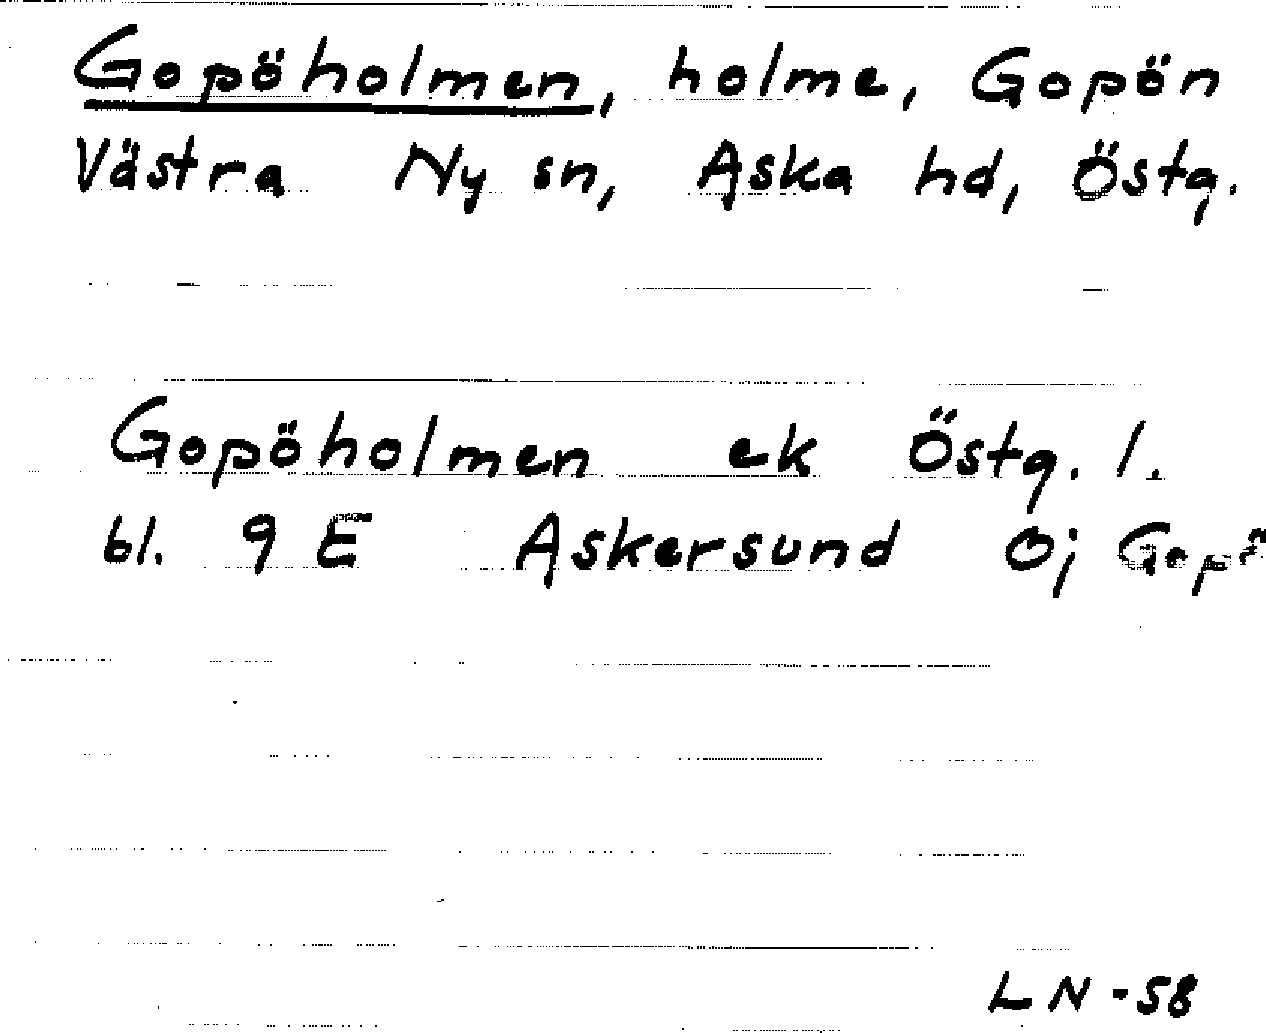 Gopöholmen, holme, Gopön
Västra Ny sn, Aska hd, Östg.
Gopöholmen ek Östg. l.
bl. 9 E Askersund O; Gopö
LN-58